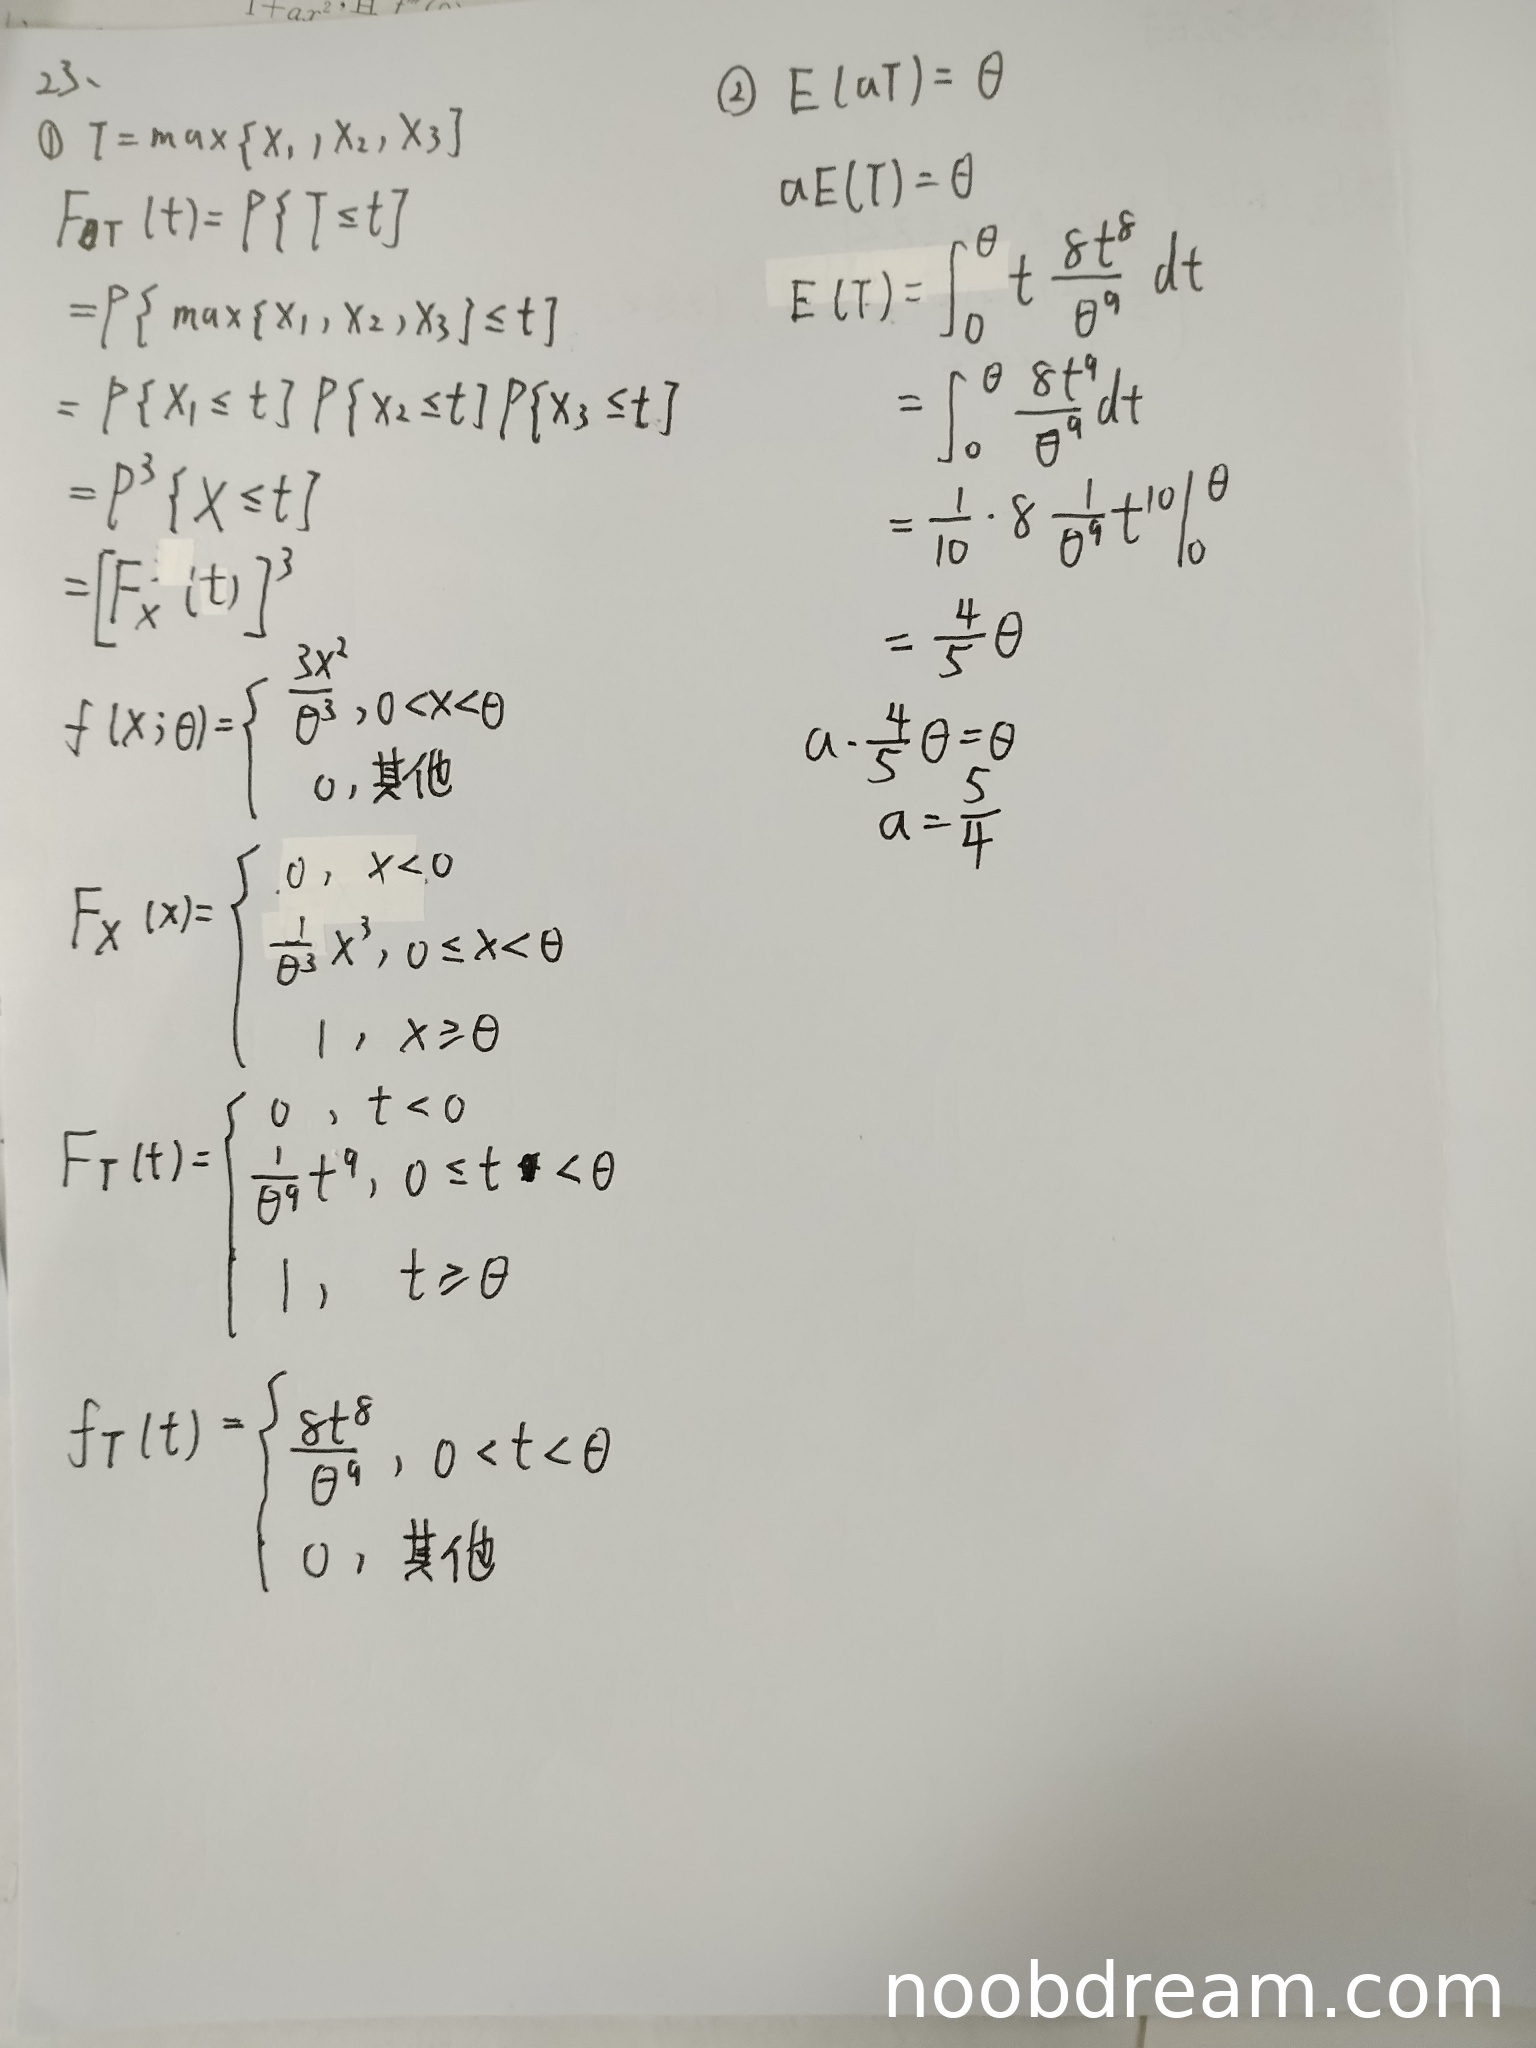 23、
① T = max{X₁, X₂, X₃}
F_T (t) = P{T ≤ t}
= P{max{X₁, X₂, X₃} ≤ t}
= P{X₁ ≤ t} P{X₂ ≤ t} P{X₃ ≤ t}
= P³{X ≤ t}
= [F_X (t)]³
f(x;θ) = { 3x²/θ³, 0<x<θ
0, 其他
F_X (x) = { 0, x<0
1/θ³ x³, 0≤x<θ
1, x≥θ
F_T (t) = { 0, t<0
1/θ⁹ t⁹, 0≤t<θ
1, t≥θ
f_T (t) = { 8t⁸/θ⁹, 0<t<θ
0, 其他
② E(aT) = θ
aE(T) = θ
E(T) = ∫₀^θ t 8t⁸/θ⁹ dt
= ∫₀^θ 8t⁹/θ⁹ dt
= 1/10 · 8 1/θ⁹ t¹⁰ |₀^θ
= 4/5 θ
a · 4/5 θ = θ
a = 5/4
noobdream.com